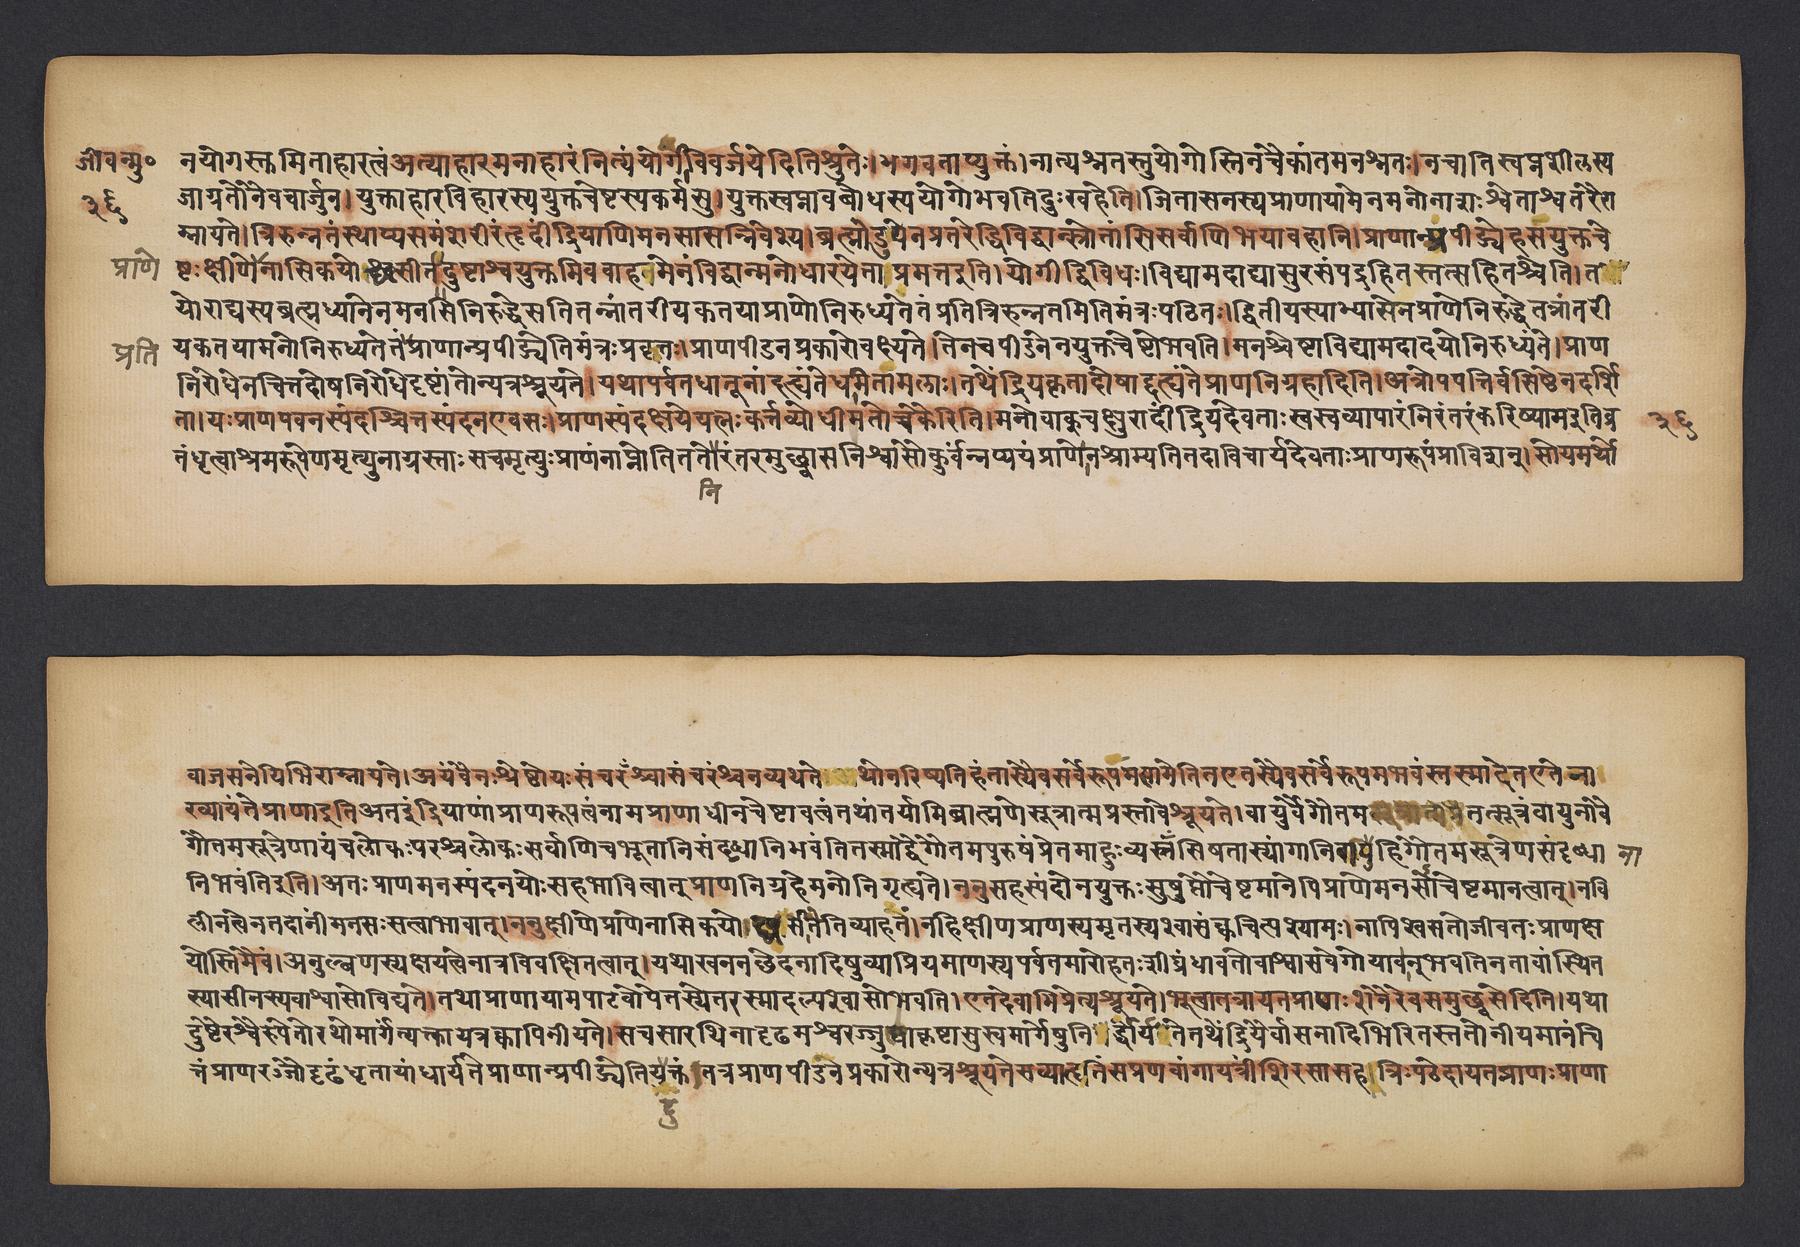 जीवन्मु०
नयोगस्तु मिताहारत्वं अत्याहारमनाहारं नित्यं योगी विवर्जयेदिति श्रुतेः। भगवताप्युक्तं। नात्यश्नतस्तु योगोस्ति न चैकांतमनश्नतः। न चाति स्वप्नशीलस्य
३६
जाग्रतो नैव चार्जुन। युक्ताहारविहारस्य युक्तचेष्टस्य कर्मसु। युक्तस्वप्नावबोधस्य योगो भवति दुःखहेति। जितासनस्य प्राणायामेन मनोनाशः श्वेताश्वतरैरा
म्नायते। त्रिरुन्नतं स्थाप्य समं शरीरं हृदींद्रियाणि मनसा सन्निवेश्य। ब्रह्मोडुपेन प्रतरेद्धि विद्वान्स्रोतांसि सर्वाणि भयावहानि। प्राणान्प्रपीड्येह सयुक्तचे
प्राणे
ष्टः क्षीणे नासिकयो श्वसीत दुष्टाश्वयुक्तमिव वाहमेनं विद्वान्मनो धारयेता प्रमत्त इति। योगी द्विविधः। विद्यामदाद्यासुरसंपद्रहितस्तत्सहितश्चेति। त
योराद्यस्य ब्रह्मध्यानेन मनसि निरुद्धे सति तन्नांतरीयकतया प्राणो निरुध्यते तं प्रति त्रिरुन्नतमिति मंत्रः पठितः। द्वितीयस्याभ्यासेन प्राणे निरुद्धे तन्नांतरी
प्रति
यकतया मनो निरुध्यते तं प्राणान्प्रपीड्येति मंत्रः प्रवृत्तः। प्राणपीडनप्रकारो वक्ष्यते। तेन च पीडनेन युक्तचेष्टो भवति। मनश्चेष्टा विद्यामदादयो निरुध्यंते। प्राण
निरोधेन चित्तदोषनिरोधे दृष्टांतोन्यत्र श्रूयते। यथा पर्वतधातूनां दह्यंते धमतां मलाः। तथेंद्रियकृता दोषा दह्यंते प्राणनिग्रहादिति। अत्रोपपत्तिर्वसिष्ठेन दर्शि
ता। यः प्राणपवनस्पंदश्चित्तस्पंदन एव सः। प्राणस्पंदक्षये यत्नः कर्त्तव्यो धीमतोच्चकैरिति। मनोवाक्चक्षुरादींद्रियदेवताः स्वस्वव्यापारं निरंतरं करिष्याम इति व्र
३६
तं धृत्वा श्रमरूपेण मृत्युना ग्रस्ताः स च मृत्युः प्राणं नाप्नोति ततो रंतरमुच्छ्वासनिश्वासो कुर्वन्नप्ययं प्राणे न श्राम्यति तदा विचार्य देवताः प्राणरूपं प्राविशन्। सोयमर्थो
नि
वाजसनेयिभिराम्नायते। अयं वै नः श्रेष्ठो यः संचरंश्चासंचरंश्च न व्यथते थो न रिष्यति हंतास्यैव सर्वे रूपमसामेति त एतस्यैव सर्वे रूपमभवंस्तस्मादेत एते ना
ख्यायंते प्राणा इति अत इंद्रियाणां प्राणरूपत्वं नाम प्राणाधीनचेष्टावत्वं तथांतर्यामि ब्राह्मणे सूत्रात्मप्रस्तावे श्रूयते। वायुर्वै गौतम तत्सूत्रं वायुना वै
गौतम सूत्रेणायं च लोकः परश्च लोकः सर्वाणि च भूतानि संदृब्धानि भवंति तस्माद्वै गौतम पुरुषं प्रेतमाहुः व्यस्रंसिषतास्यांगानि वायुर्हि गौतम सूत्रेण संदृब्धा
ना
नि भवंति इति। अतः प्राणमनस्पंदनयोः सहभावित्वात् प्राणनिग्रहे मनो निगृह्यते। ननु सहस्पंदो न युक्तः सुषुप्तौ चेष्टमानेपि प्राणे मनसो चेष्टमानत्वात्। नवि
लीनत्वेन तदानीं मनसः सत्वाभावात्। ननु क्षीणे प्राणे नासिकयो श्वसीतेति व्याहतं। नहि क्षीणप्राणस्य मृतस्य श्वासं क्वचित्पश्यामः। नापि श्वसतो जीवतः प्राणक्ष
योस्ति मैवं। अनुल्बणस्य क्षयत्वेनात्र विवक्षितत्वात्। यथा खननछेदनादिषु व्याप्रियमाणस्य पर्वतमारोहतः शीघ्रं धावतो वा श्वासवेगो यावन् भवति न तावांस्थित
स्यासीनस्य वा श्वासो विद्यते। तथा प्राणायामपाटवोपेतस्येतरस्मादल्पश्वासो भवति। एतदेवाभिप्रेत्य श्रूयते। भूत्वा तत्रायतप्राणः शनैरेव समुच्छ्वसेदिति। यथा
दुष्टैरश्वैरुपेतो रथो मार्गं त्यक्त्वा यत्र क्वापि नीयते। स च सारथिना दृढमश्वरज्जुष्वाकृष्टासु स्वमार्गेषु नि र्द्धार्यते तथेंद्रियैर्वासनादिभिरितस्ततो नीयमानं चि
त्तं प्राणरज्जौ दृढं धृतायां धार्यते प्राणान्प्रपीड्येति यक्तं तत्र प्राणपीडनप्रकारोन्यत्र श्रूयते सव्याहृतिं सप्रणवां गायत्रीं शिरसा सह। त्रिः पठेदायतप्राणः प्राणा
दु